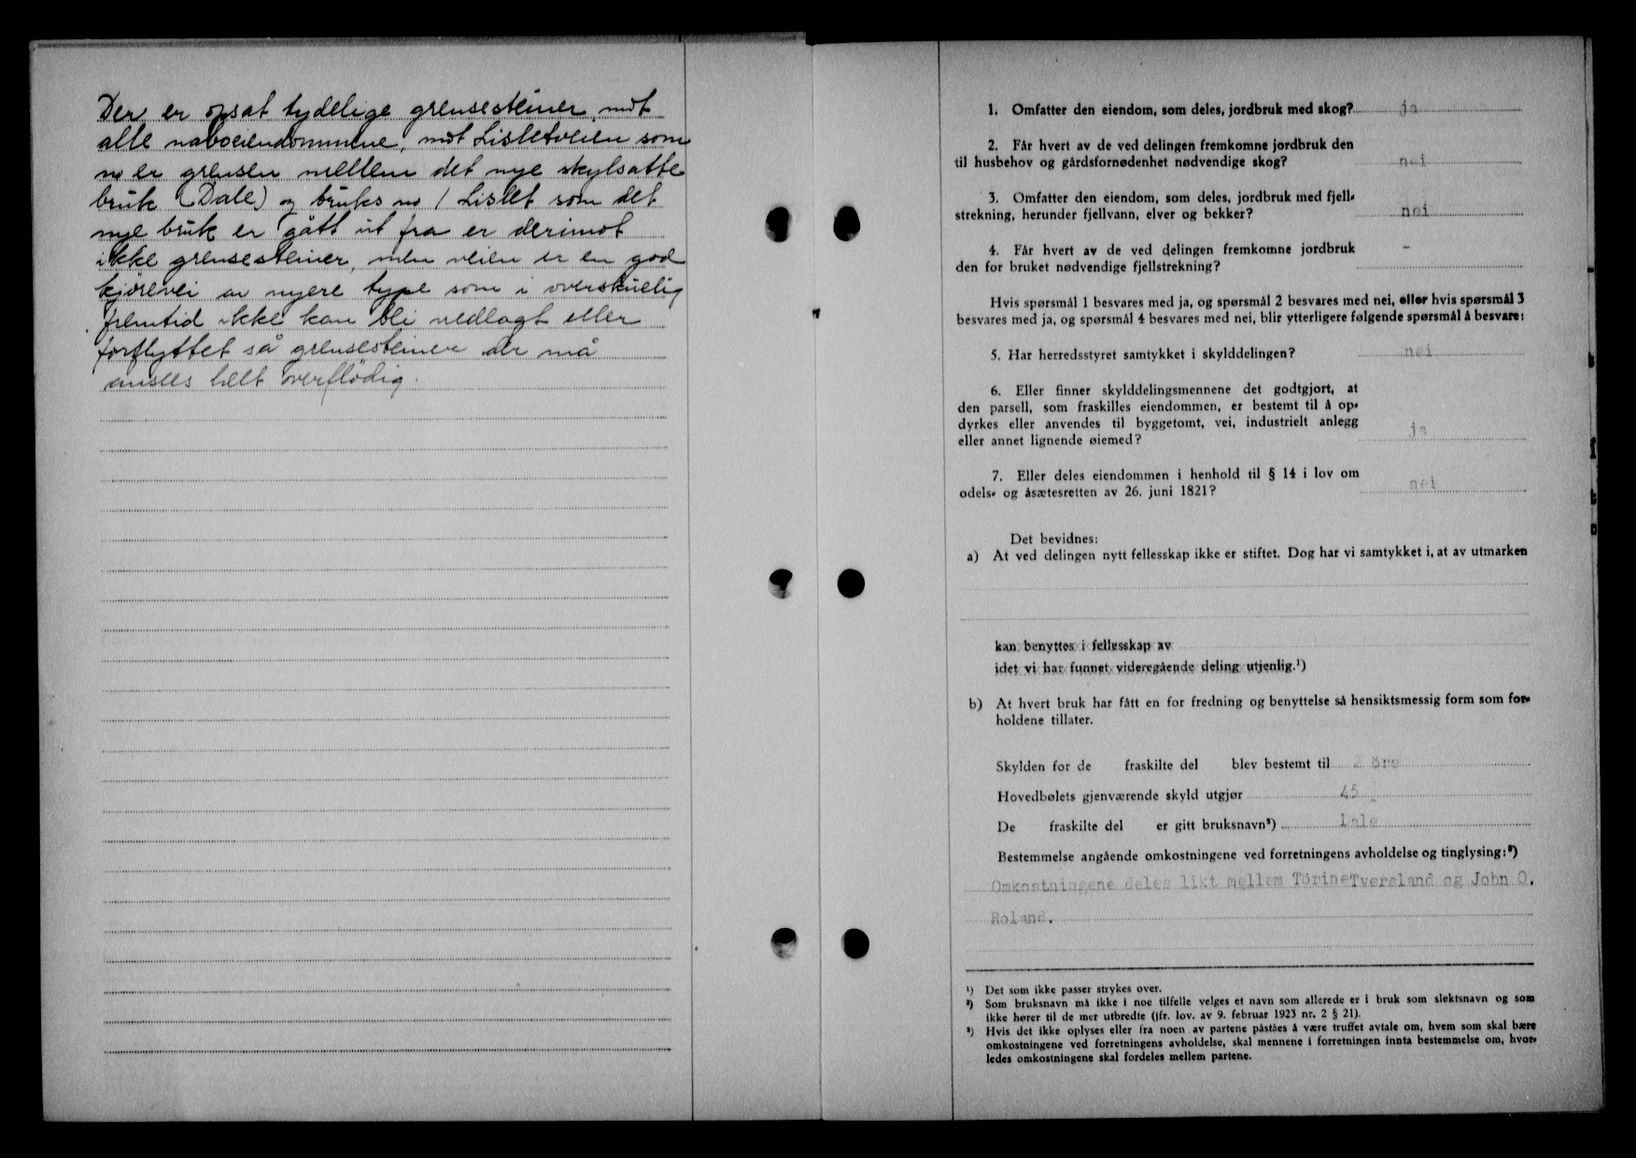 Der er opsat tydelige grensesteiner mot
alle naboeiendommene, mot Lisletveien som
no er grensen mellem det nye skylsatte
bruk (Dale) og bruks no 1 Lislet som det
nye bruk er gått ut fra er derimot
ikke grensesteiner, men veien er en god
kjörevei av nyere type som i overskuelig
fremtid ikke kan bli nedlagt eller
forflyttet så grensesteiner der må
ansees helt overflödig.
1. Omfatter den eiendom, som deles, jordbruk med skog? ja
2. Får hvert av de ved delingen fremkomne jordbruk den
til husbehov og gårdsfornødenhet nødvendige skog? nei
3. Omfatter den eiendom, som deles, jordbruk med fjell-
strekning, herunder fjellvann, elver og bekker? nei
4. Får hvert av de ved delingen fremkomne jordbruk -
den for bruket nødvendige fjellstrekning?
Hvis spørsmål 1 besvares med ja, og spørsmål 2 besvares med nei, eller hvis spørsmål 3
besvares med ja, og spørsmål 4 besvares med nei, blir ytterligere følgende spørsmål å besvare:
5. Har herredsstyret samtykket i skylddelingen? nei
6. Eller finner skylddelingsmennene det godtgjort, at
den parsell, som fraskilles eiendommen, er bestemt til å op-
dyrkes eller anvendes til byggetomt, vei, industrielt anlegg
eller annet lignende øiemed? ja
7. Eller deles eiendommen i henhold til § 14 i lov om
odels- og åsætesretten av 26. juni 1821? nei
Det bevidnes:
a) At ved delingen nytt fellesskap ikke er stiftet. Dog har vi samtykket i, at av utmarken
kan benyttes i fellesskap av
idet vi har funnet videregående deling utjenlig.¹)
b) At hvert bruk har fått en for fredning og benyttelse så hensiktsmessig form som for-
holdene tillater.
Skylden for de fraskilte del blev bestemt til 2 öre
Hovedbølets gjenværende skyld utgjør 45
De fraskilte del er gitt bruksnavn²) Dale
Bestemmelse angående omkostningene ved forretningens avholdelse og tinglysing:³)
Omkostningene deles likt mellem Törine Tversland og John O.
Roland.
¹) Det som ikke passer strykes over.
²) Som bruksnavn må ikke i noe tilfelle velges et navn som allerede er i bruk som slektsnavn og som
ikke hører til de mer utbredte (jfr. lov. av 9. februar 1923 nr. 2 § 21).
³) Hvis det ikke oplyses eller fra noen av partene påståes å være truffet avtale om, hvem som skal bære
omkostningene ved forretningens avholdelse, skal mennene i forretningen innta bestemmelse om, hvor-
ledes omkostningene skal fordeles mellem partene.